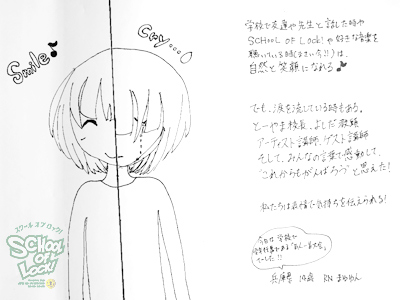 Smile♪
Cry....
学校で友達や先生と話した時や
SCHOOL OF LOCK!や好きな音楽を
聴いている時(まさに今!!)は、
自然と笑顔になれる♪
でも、涙を流している時もある。
とーやま校長、よしだ教頭
アーティスト講師、ゲスト講師
そして、みんなの言葉で感動して、
"これからもがんばろう"と思えた!
私たちは表情で気持ちを伝えられる!
今日は学校で
でした!!
兵庫県
RN
スクール オブ ロック!
SCHOOL
OF
LOCK!